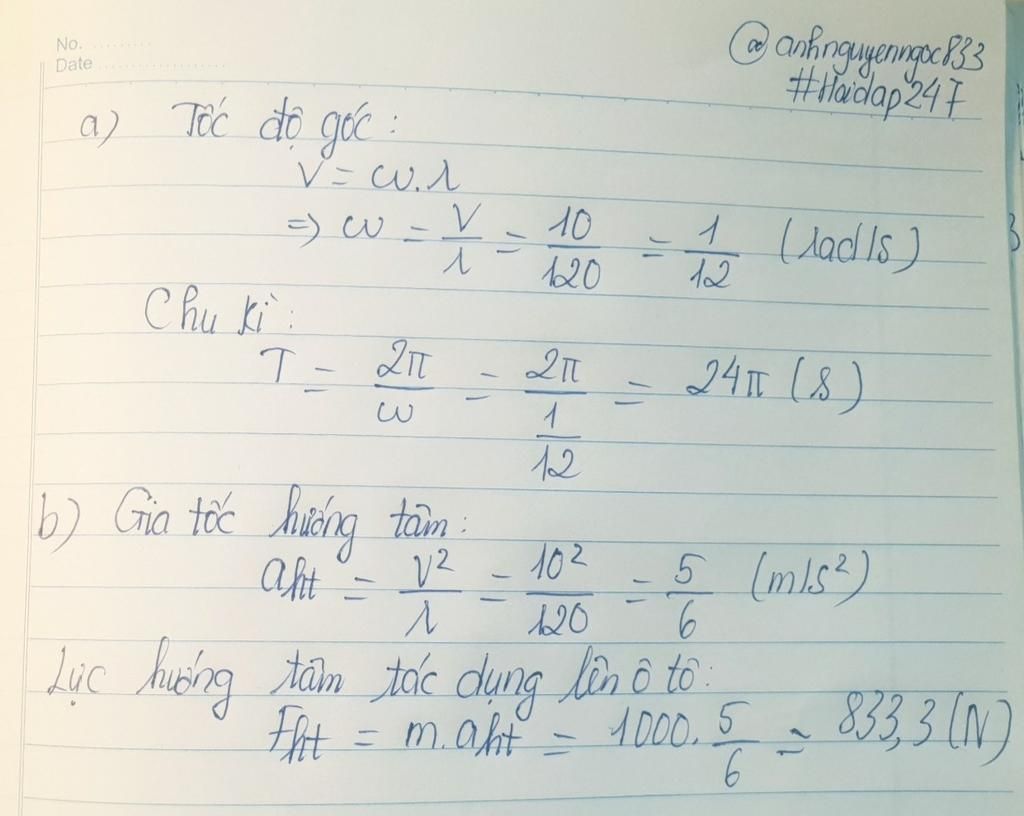 No. ..........
Date ....................
@anhnguyenngoc833
#Hoidap247
a) Tốc độ góc:
V = ω.r
=> ω = V/r = 10/120 = 1/12 (rad/s)
Chu kì:
T = 2π/ω = 2π/(1/12) = 24π (s)
b) Gia tốc hướng tâm:
aht = V²/r = 10²/120 = 5/6 (m/s²)
Lực hướng tâm tác dụng lên ô tô:
Fht = m.aht = 1000.5/6 = 833,3 (N)